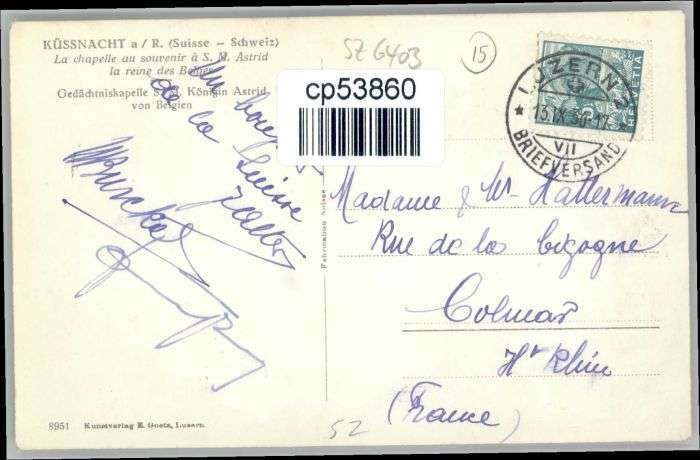 KÜSSNACHT a / R. (Suisse – Schweiz)
La chapelle au souvenir à S. M. Astrid
la reine des Belges
Gedächtniskapelle Königin Astrid
von Belgien
SZ 6403
15
cp53860
HELVETIA
LUZERN 2
15.IX.
VII
BRIEFVERSAND
Un
de la Suisse
Fabrication Suisse
Madame & Mr Hattermann
Rue de la Cigogne
Colmar
Ht Rhin
(France)
SZ
8951 Kunstverlag E. Goetz, Luzern.